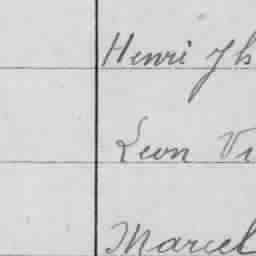 Henri Th
Leon Vi
Marcel